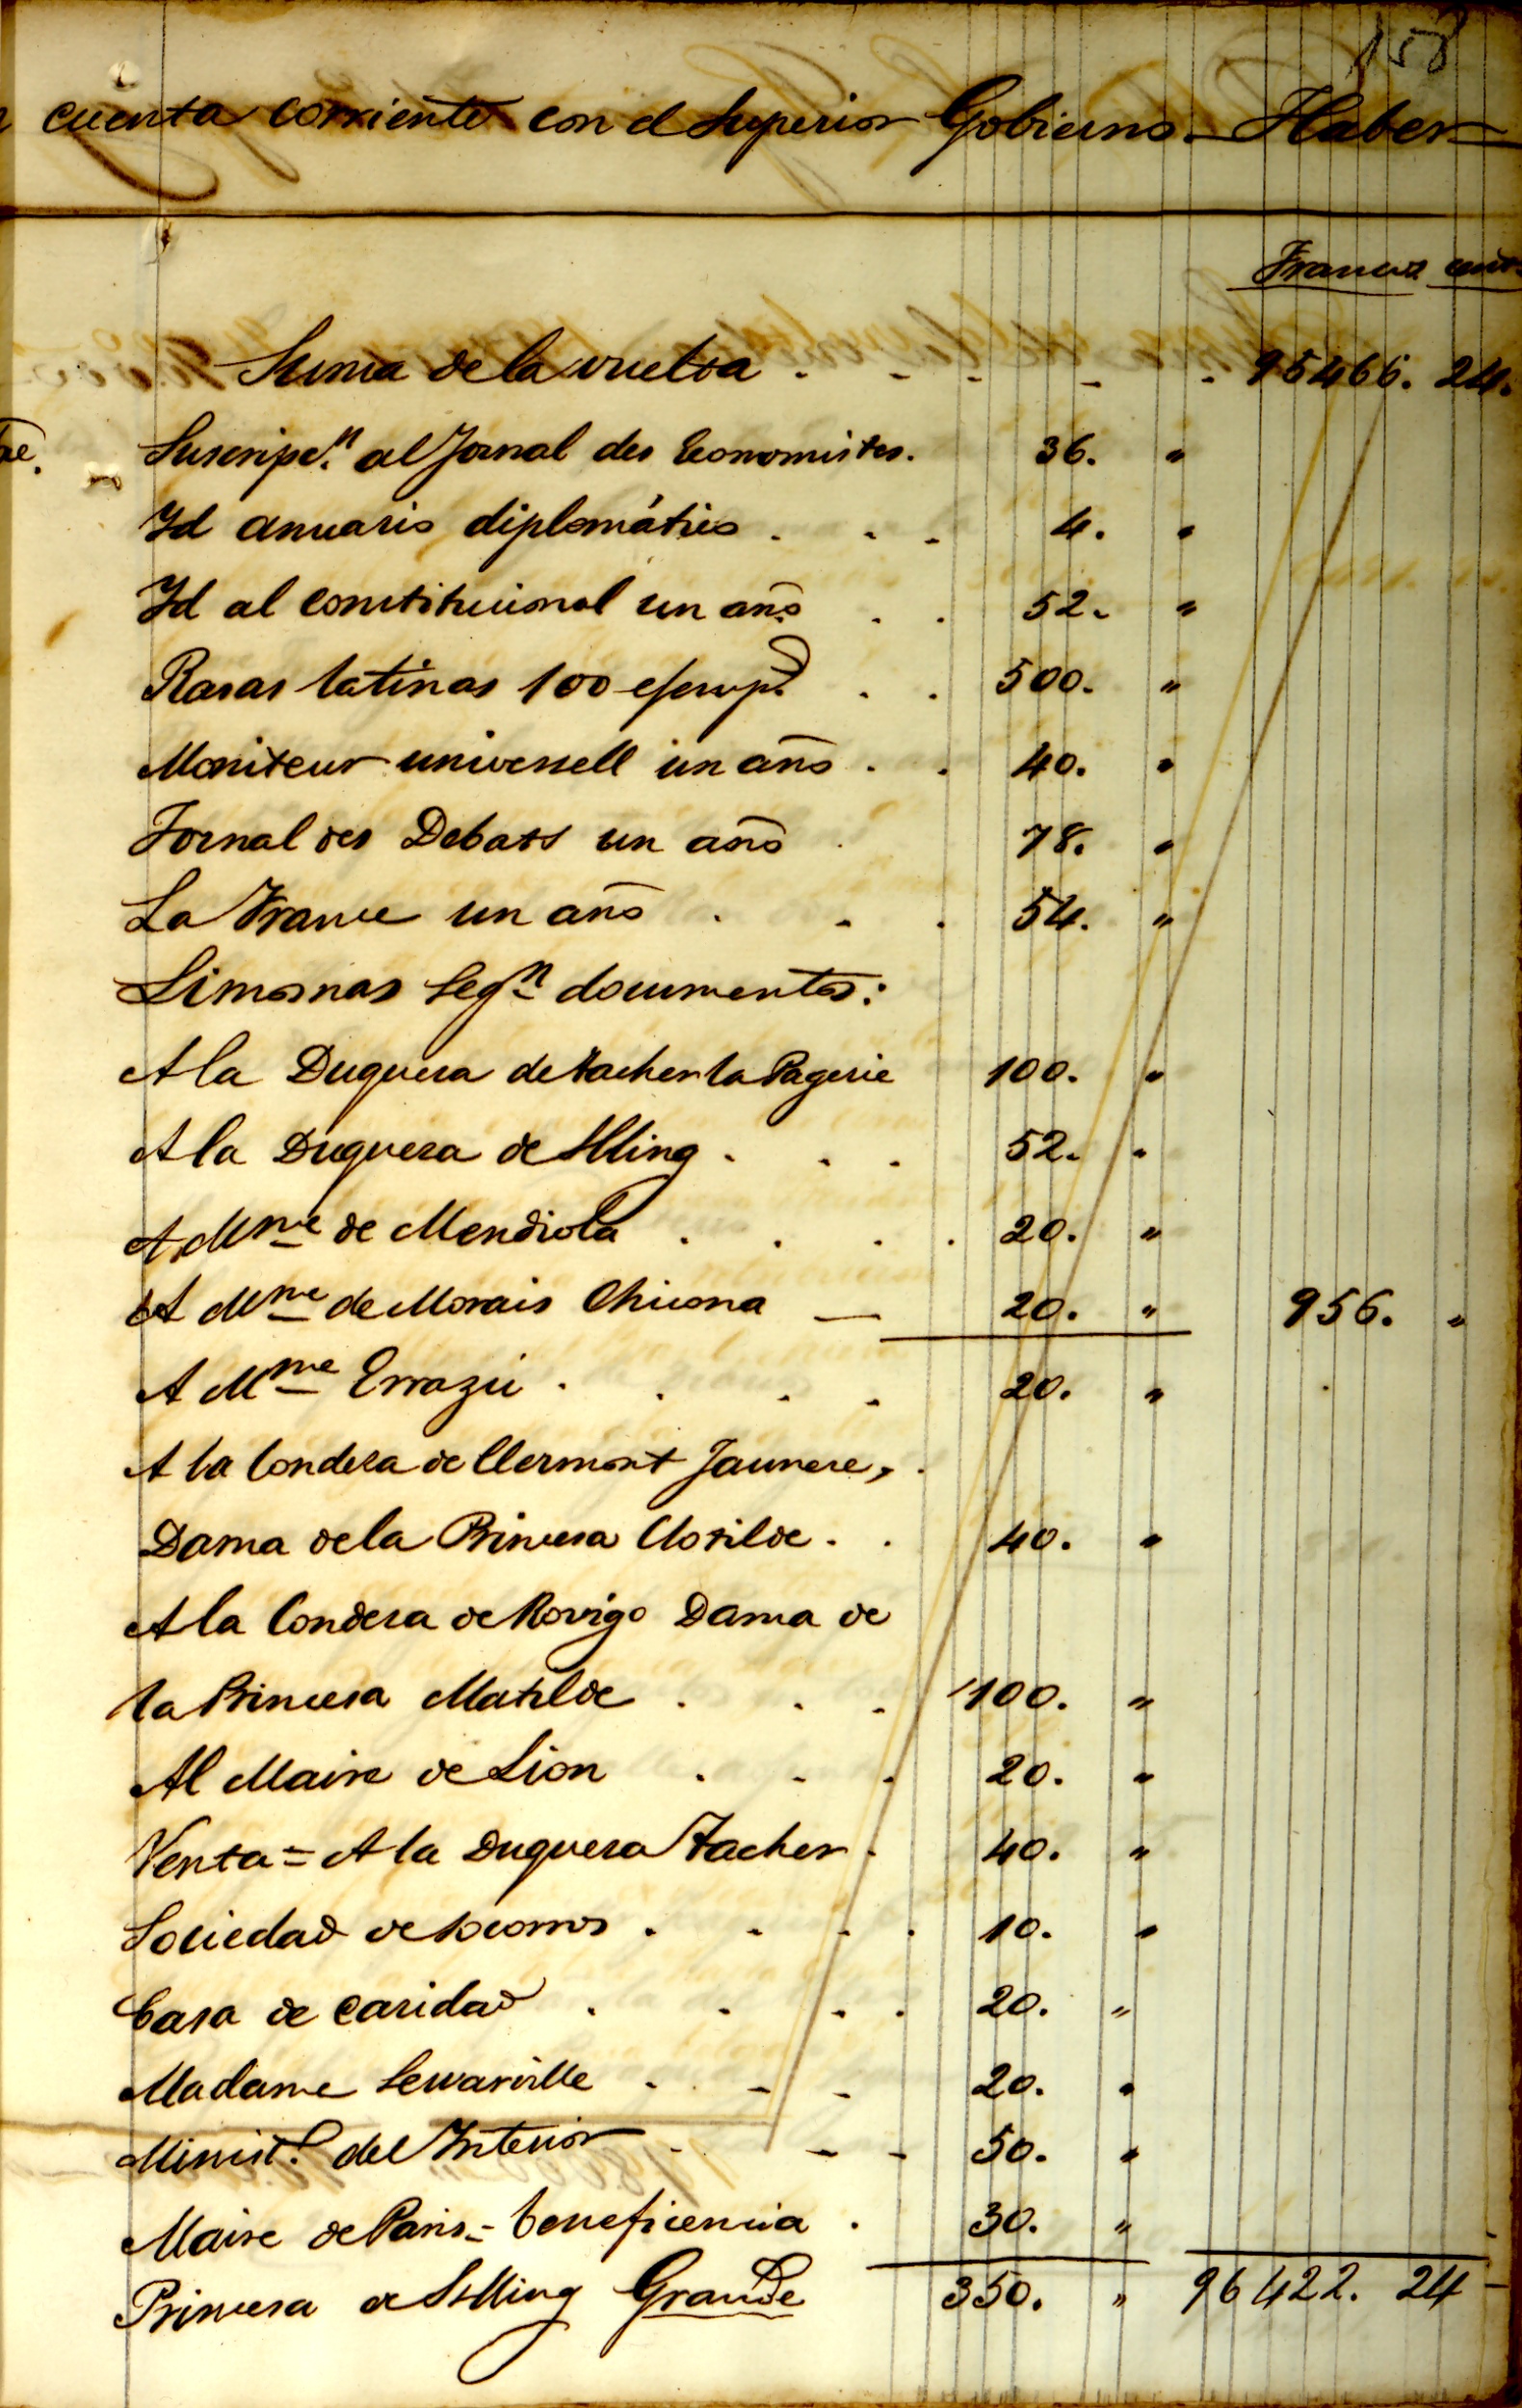 158
cuenta corriente con el Superior Gobierno. Haber
Francos cent.
Suma de la vuelta . - - - . 95466. 24.
Suscripc.n al Jornal des Economistes. 36. "
Id anuario diplomático . . - 4. "
Id al constitucional un año . . 52. "
Rasas latinas 100 ejemp.s . . 500. "
Moniteur universell un año . . 40. "
Jornal des Debats un año . 78. "
La France un año . - . 54. "
Limosnas segn documentos:
A la Duquesa de Tacher la Pagerie 100. "
A la Duquesa de . . . 52. "
A Mme de Mendiola . . . . 20. "
A Mme de Morais — 20. " 956. "
A Mme Errazu . . . . 20. "
A la Condesa de Clermont
Dama de la Princesa Clotilde . . 40. "
A la Condesa de Rovigo Dama de
la Princesa Matilde . . . 100. "
Al Maire de Lion . . . 20. "
Venta = A la Duquesa Tacher . 40. "
Sociedad de socorros . . . . 10. "
Casa de caridad . . . . 20. "
Madame . - - 20. "
Minist.o del Interior - - - 50. "
Maire de Paris = beneficencia . 30. "
Princesa de Grande 350. " 96422. 24